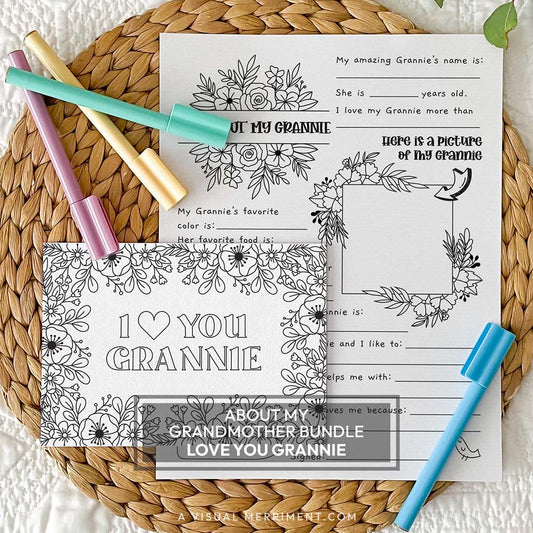 My amazing Grannie's name is:
She is years old.
I love my Grannie more than
UT MY GRANNIE
Here is a picture
of my Grannie
My Grannie's favorite
color is:
Her favorite food is:
I ♡ YOU
GRANNIE
annie is:
e and I like to:
elps me with:
oves me because:
Signed:
ABOUT MY
GRANDMOTHER BUNDLE
LOVE YOU GRANNIE
A VISUAL MERRIMENT.COM